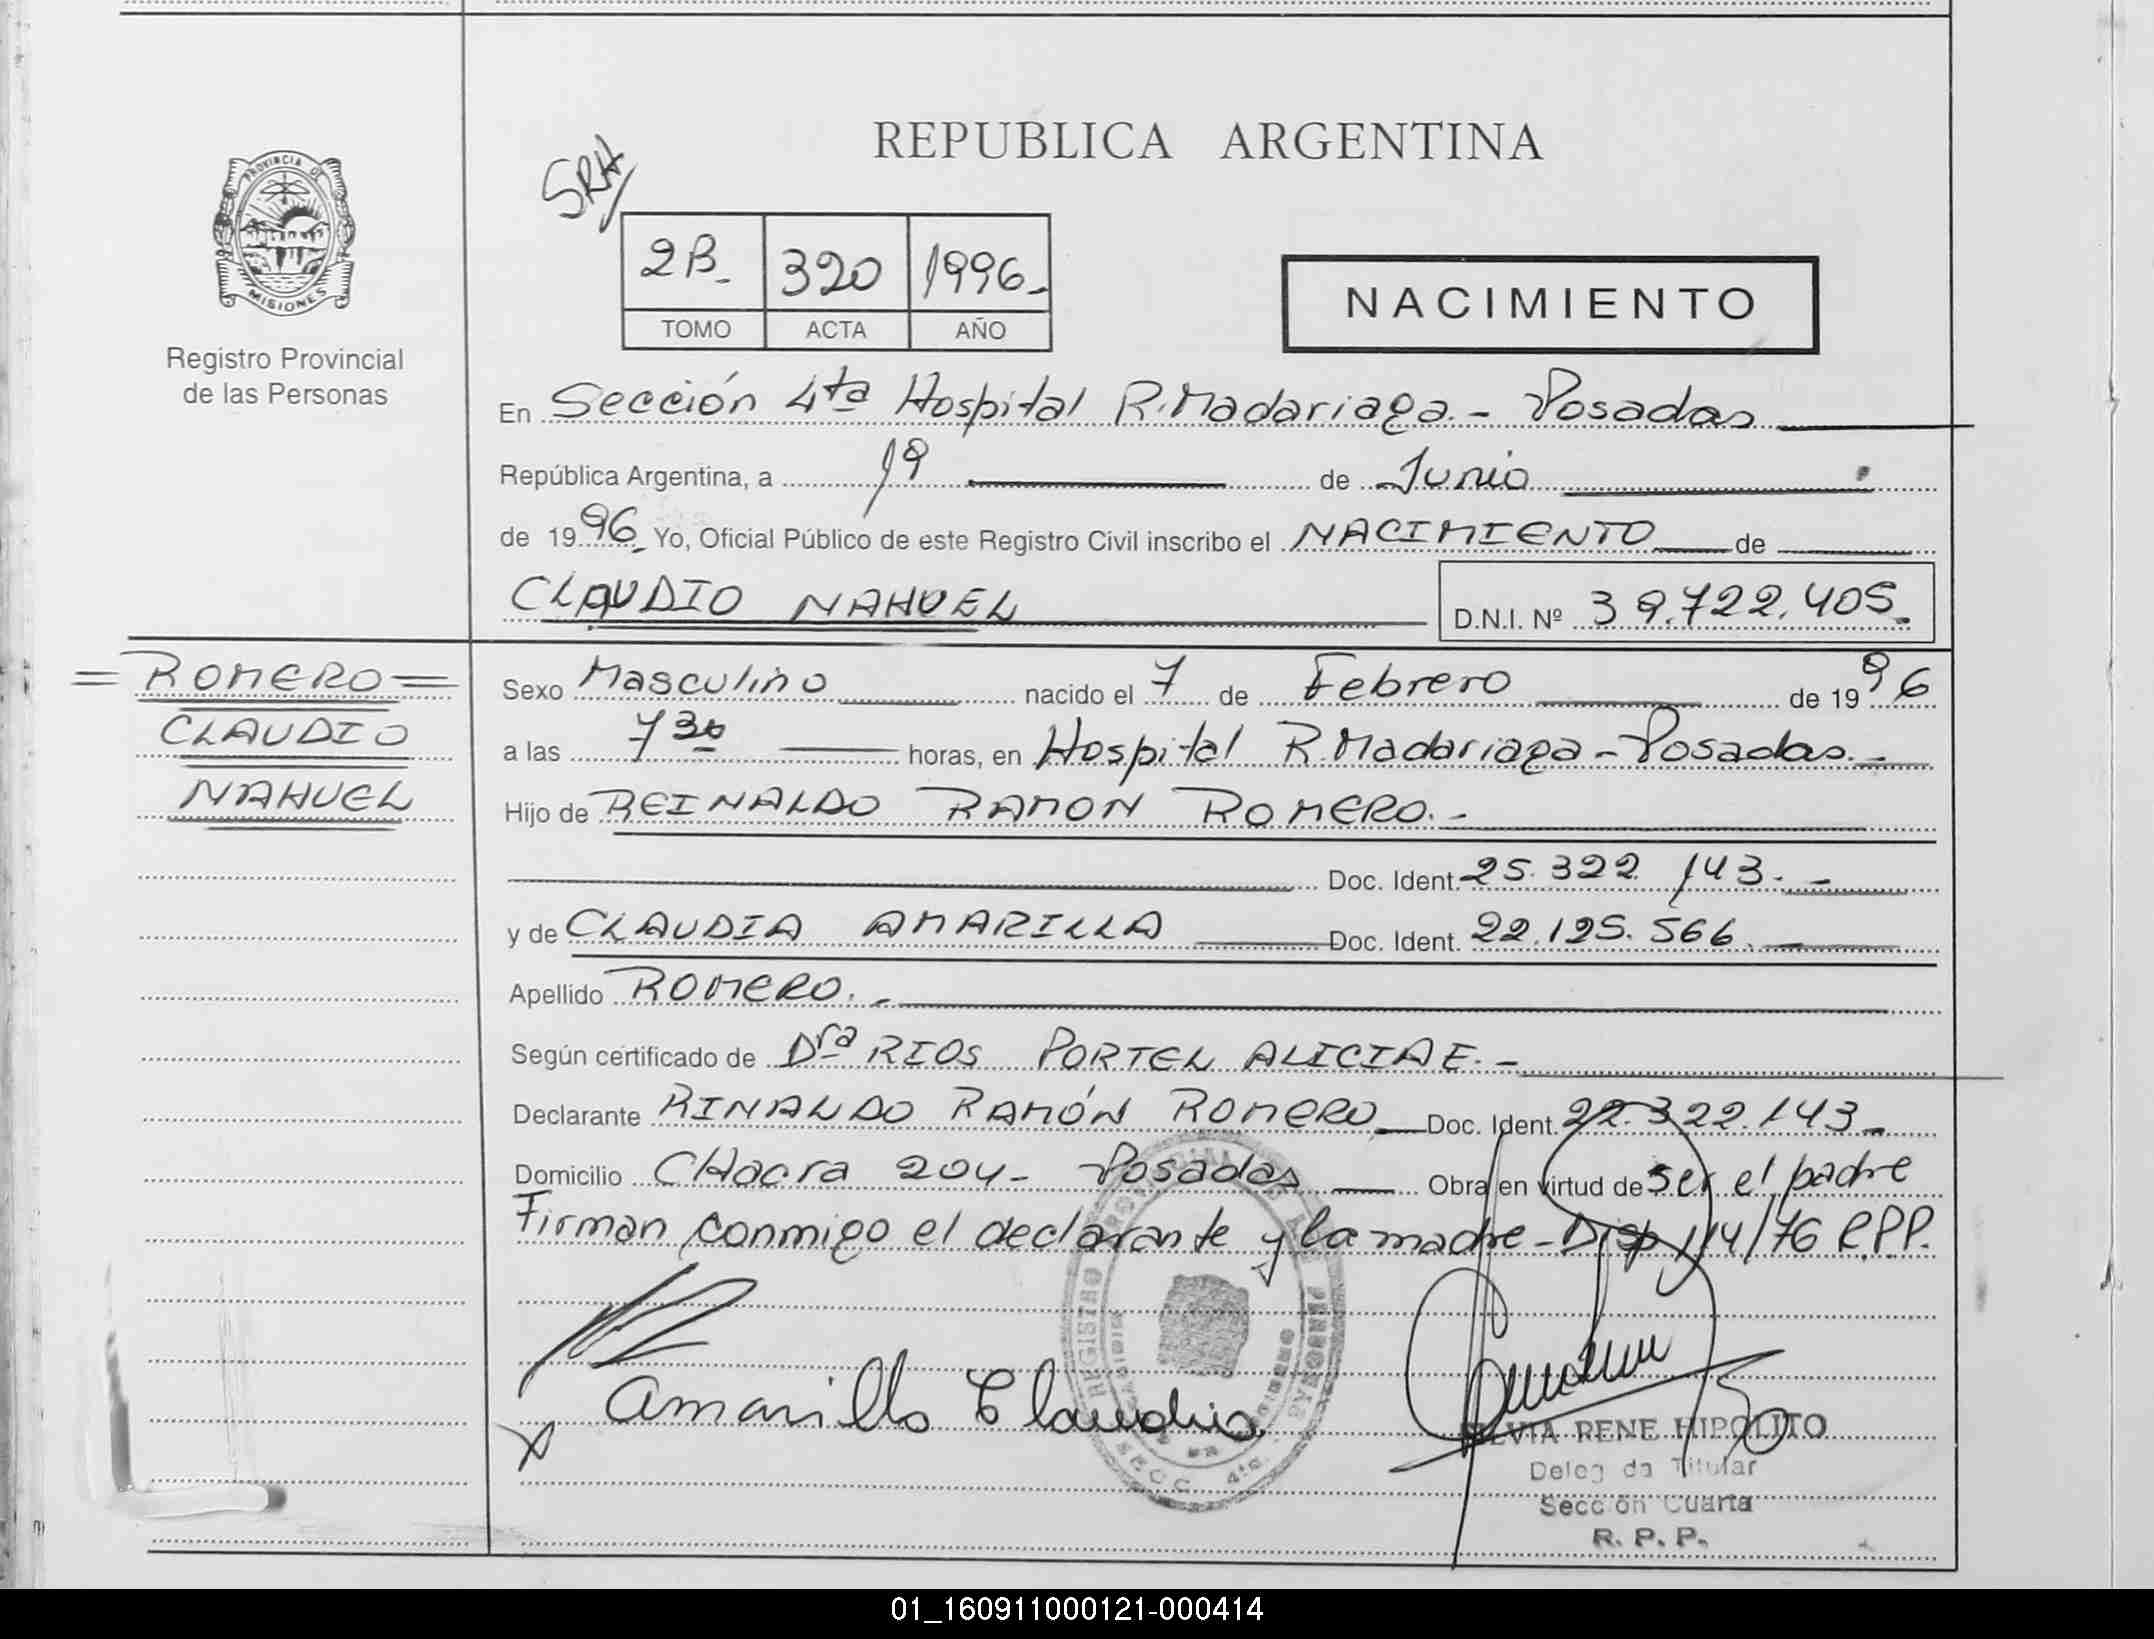 REPUBLICA ARGENTINA
SRA/
PROVINCIA DE
MISIONES
Registro Provincial
de las Personas
2B- 320 1996-
TOMO ACTA AÑO
NACIMIENTO
En Sección 4ta Hospital R.Madariaga.- Posadas
República Argentina, a 19 de Junio
de 1996 Yo, Oficial Público de este Registro Civil inscribo el NACIMIENTO de
CLAUDIO NAHUEL D.N.I. Nº 39.722.405.-
=ROMERO=
CLAUDIO
NAHUEL
Sexo Masculino nacido el 7 de Febrero de 1996
a las 7 30 horas, en Hospital R.Madariaga-Posadas.-
Hijo de REINALDO RAMON ROMERO.-
Doc. Ident. 25.322 143.-
y de CLAUDIA AMARILLA Doc. Ident. 22.125.566.
Apellido ROMERO.-
Según certificado de Dra RIOS PORTEL ALICIA E.-
Declarante RINALDO RAMÓN ROMERO Doc. Ident. 22.322.143-
Domicilio CHacra 204- Posadas Obra en virtud de ser el padre
Firman conmigo el declarante y la madre-Disp 114/76 R.P.P.
Amarilla Claudia
REGISTRO PERSONAS
SECC. 4ta.
SILVIA RENE HIPOLITO
Deleg da Titular
Sección Cuarta
R. P. P.
01_160911000121-000414